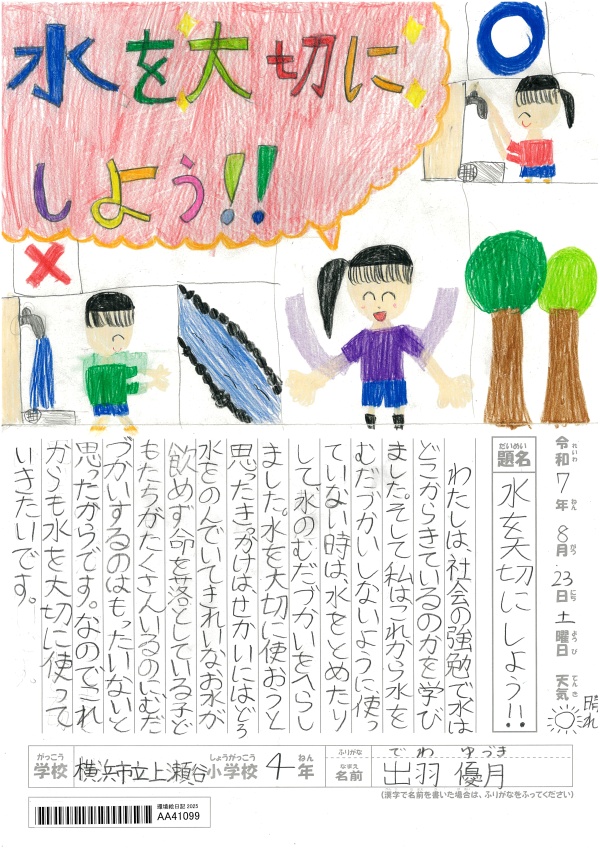 水を大切に
しよう!!
令和7年8月23日土曜日 天気 晴れ
れいわ ねん がつ にち ようび てんき
だいめい
題名 水を大切にしよう!!
わたしは、社会の強勉で水は
どこからきているのかを学び
ました。そして私はこれから水を
むだづかいしないように、使っ
ていない時は、水をとめたり
して、水のむだづかいをへらし
ました。水を大切に使おうと
思ったきっかけは、せかいにはどろ
水をのんでいてきれいなお水が
飲めず命を落としている子ど
もたちがたくさんいるのにむだ
づかいするのはもったいないと
思ったからです。なのでこれ
からも水を大切に使って
いきたいです。
がっこう しょうがっこう ねん ふりがな でわ ゆづき
学校 横浜市立上瀬谷小学校 4年 なまえ 名前 出羽 優月
(漢字で名前を書いた場合は、ふりがなをふってください)
環境絵日記 2025
AA41099